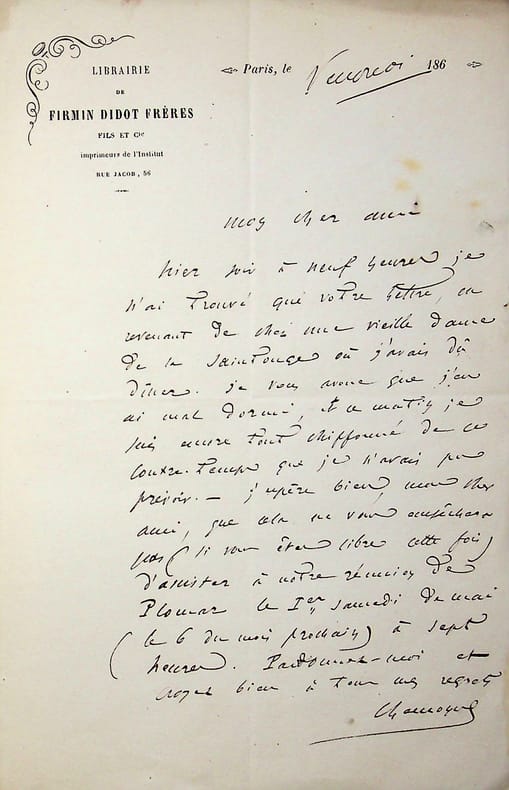 LIBRAIRIE
DE
FIRMIN DIDOT FRÈRES
FILS ET Cie
imprimeurs de l'Institut
RUE JACOB, 56
Paris, le Vendredi 186
Mon cher ami
Hier soir à neuf heures je
n'ai trouvé que votre lettre, en
revenant de chez une vieille dame
de la Saintonge où j'avais dû
dîner. je vous avoue que j'en
ai mal dormi, et ce matin je
suis encore tout chiffonné de ce
contre-temps que je n'avais pu
prévoir. — j'espère bien, mon cher
ami, que cela ne vous empêchera
pas (si vous êtes libre cette fois)
d'assister à notre réunion de
le Ier samedi de mai
(le 6 du mois prochain) à sept
heures. Pardonnez-moi et
croyez bien à tous mes regrets